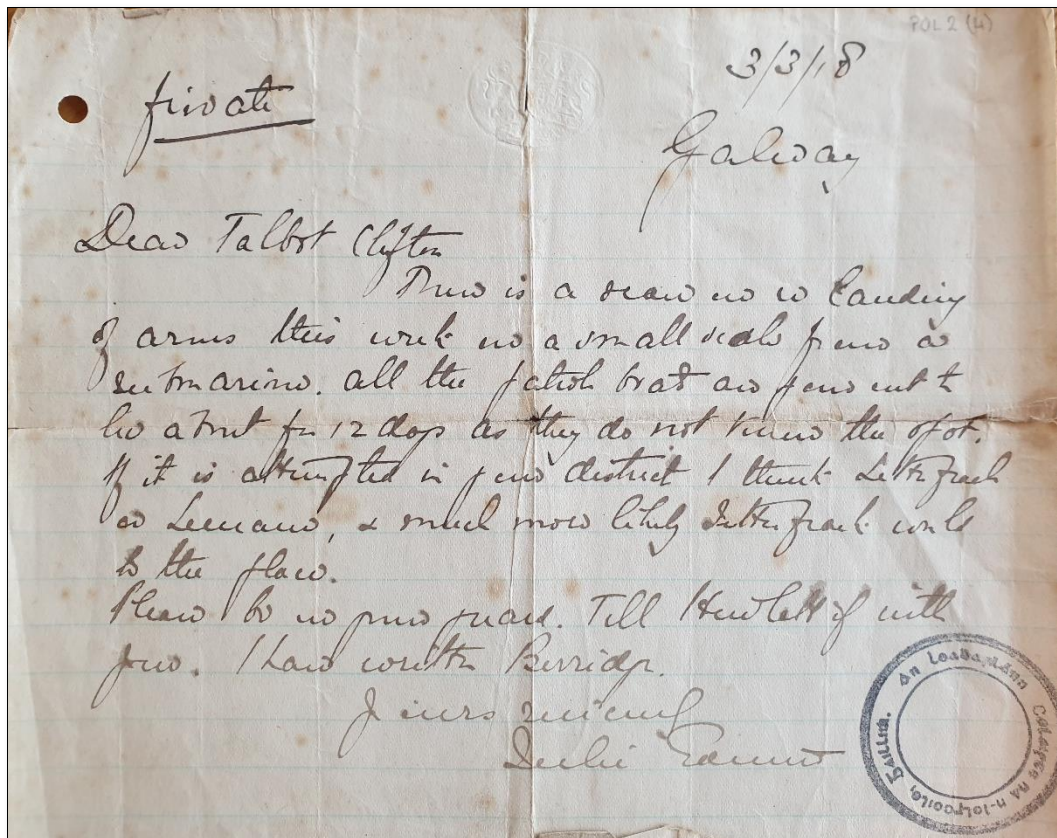 POL 2 (4)
3/3/18
private
Galway
Dear Talbot Clifton
There is a scare on landing
of arms this week on a small scale from a
submarine. All the patrol boats are out to
be about for 12 days as they do not know the spot.
If it is attempted in your district I think Letterfrack
or Leenane, & much more likely Letterfrack would
be the place.
Please be on your guard. Tell Hewlett if with
you. I have written Berridge.
Yours sincerely
Leslie
An Leabarlann Coláiste na h-Iolscoile, Gaillimh.